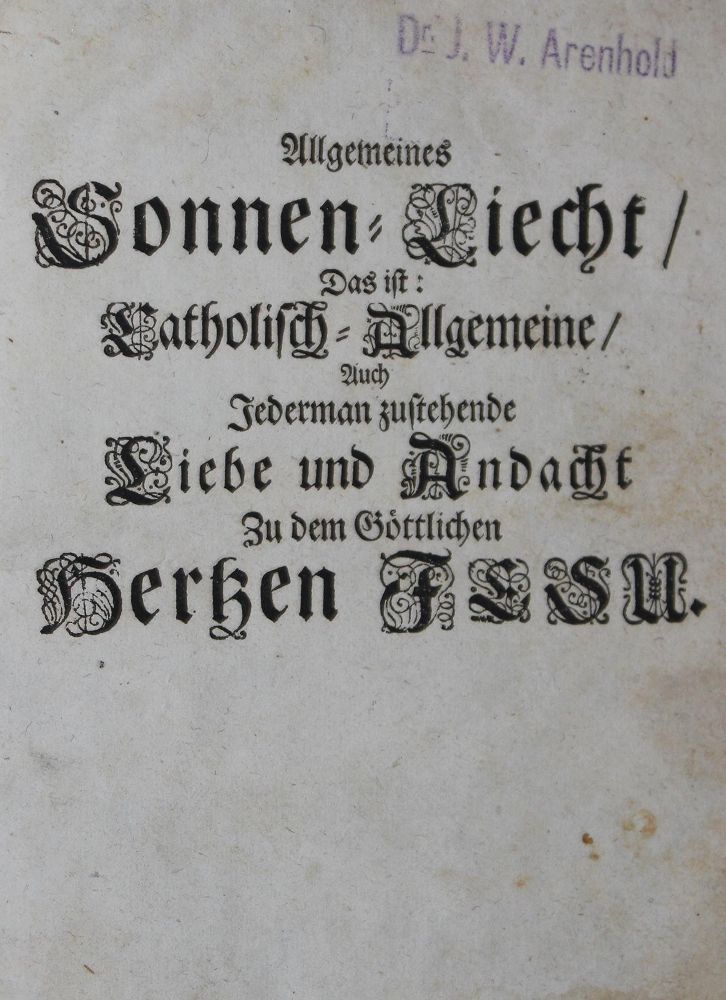 Dr. J. W. Arenhold
Allgemeines
Sonnen-Liecht/
Das ist:
Catholisch-Allgemeine/
Auch
Jederman zustehende
Liebe und Andacht
Zu dem Göttlichen
Hertzen JESU.